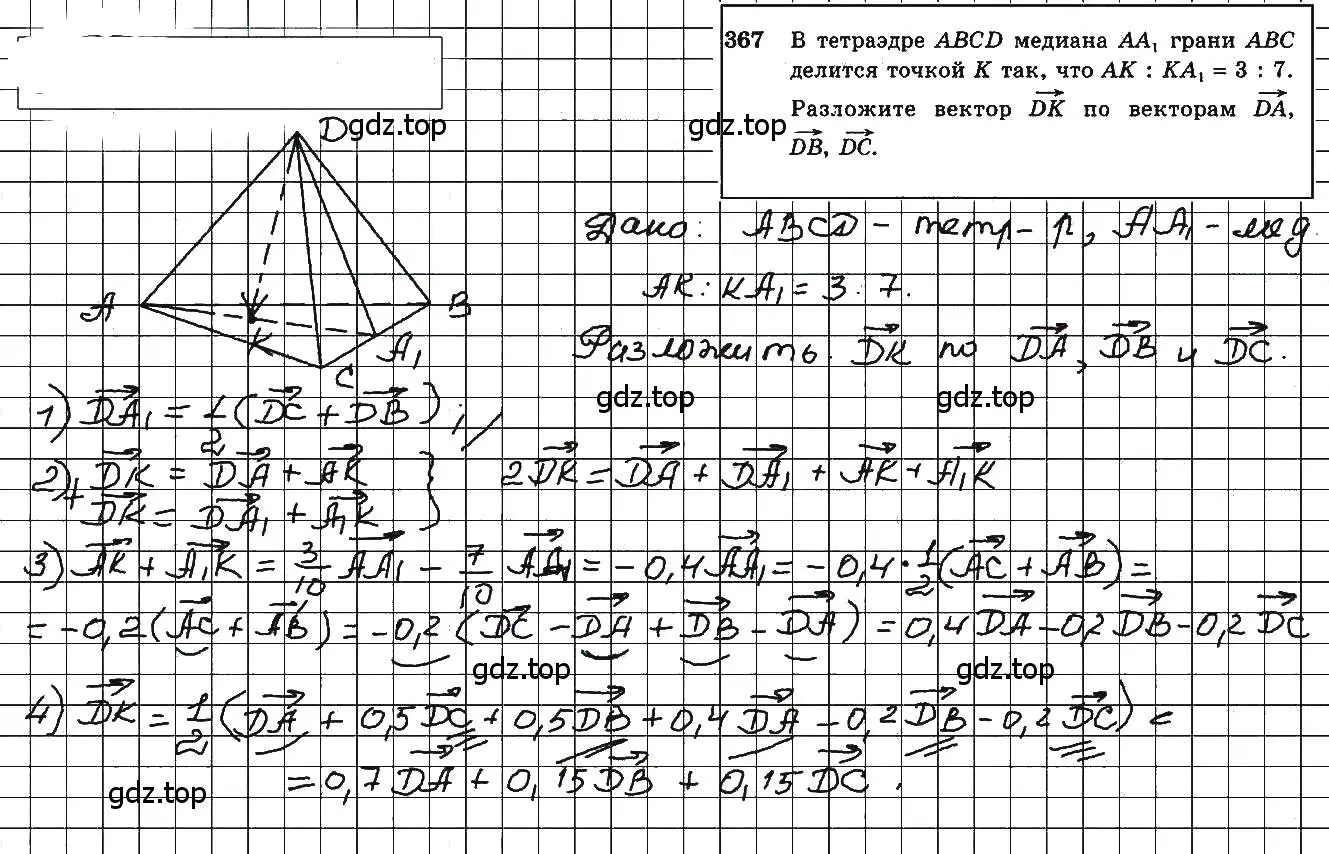 367 В тетраэдре ABCD медиана AA₁ грани ABC
делится точкой K так, что AK : KA₁ = 3 : 7.
Разложите вектор \overrightarrow{DK} по векторам \overrightarrow{DA},
\overrightarrow{DB}, \overrightarrow{DC}.
gdz.top
gdz.top
D
A
B
K
A₁
C
Дано: ABCD - тетр-р, AA₁ - мед.
AK : KA₁ = 3 : 7.
Разложить. \overrightarrow{DK} по \overrightarrow{DA}, \overrightarrow{DB} и \overrightarrow{DC}.
gdz.top
gdz.top
1) \overrightarrow{DA₁} = 1/2 (\overrightarrow{DC} + \overrightarrow{DB});
2) + \overrightarrow{DK} = \overrightarrow{DA} + \overrightarrow{AK}
\overrightarrow{DK} = \overrightarrow{DA₁} + \overrightarrow{A₁K} } 2\overrightarrow{DK} = \overrightarrow{DA} + \overrightarrow{DA₁} + \overrightarrow{AK} + \overrightarrow{A₁K}
3) \overrightarrow{AK} + \overrightarrow{A₁K} = 3/10 \overrightarrow{AA₁} - 7/10 \overrightarrow{AA₁} = -0,4\overrightarrow{AA₁} = -0,4 · 1/2 (\overrightarrow{AC} + \overrightarrow{AB}) =
= -0,2(\overrightarrow{AC} + \overrightarrow{AB}) = -0,2(\overrightarrow{DC} - \overrightarrow{DA} + \overrightarrow{DB} - \overrightarrow{DA}) = 0,4\overrightarrow{DA} - 0,2\overrightarrow{DB} - 0,2\overrightarrow{DC}
gdz.top
gdz.top
4) \overrightarrow{DK} = 1/2 (\overrightarrow{DA} + 0,5\overrightarrow{DC} + 0,5\overrightarrow{DB} + 0,4\overrightarrow{DA} - 0,2\overrightarrow{DB} - 0,2\overrightarrow{DC}) =
= 0,7\overrightarrow{DA} + 0,15\overrightarrow{DB} + 0,15\overrightarrow{DC}.
gdz.top